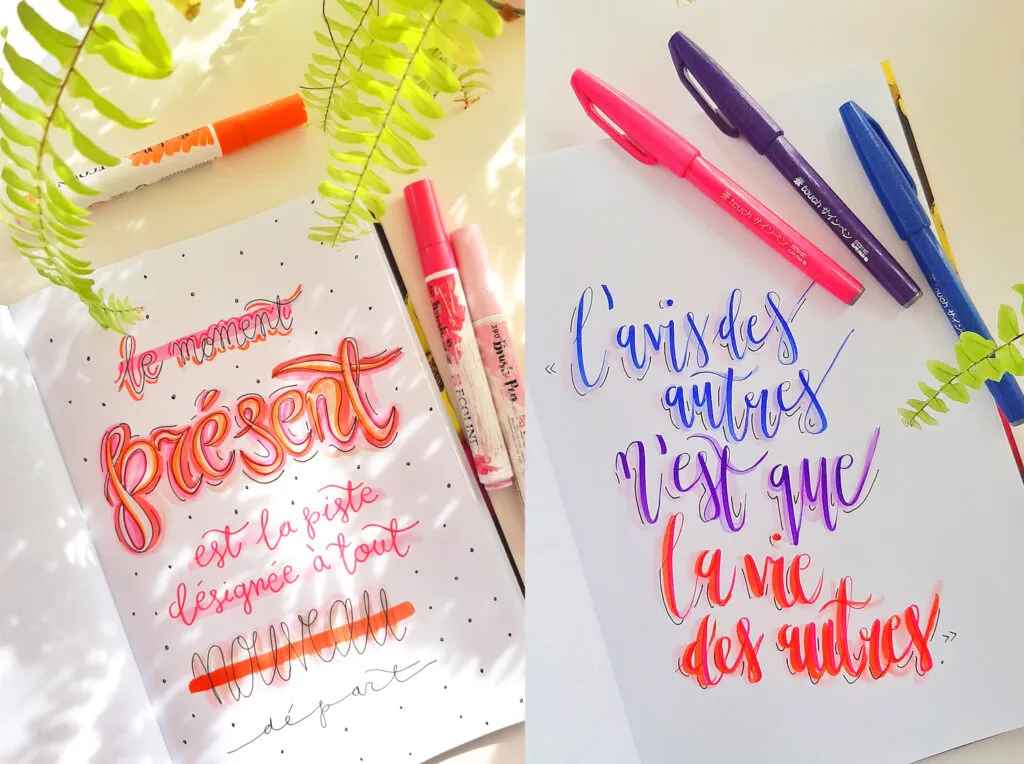 le moment
présent
est la piste
désignée à tout
nouveau
départ
Brush Pen
ECOLINE
« l'avis des
autres
n'est que
la vie
des autres. »
touch サインペン
touch サインペン
touch サインペン